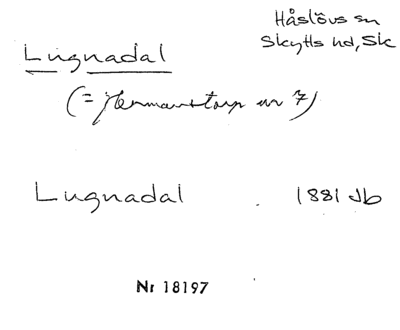 Håslövs sn
Skytts hd, Sk
Lugnadal
(= Hermanstorp nr 7)
Lugnadal 1881 Jb
Nr 18197